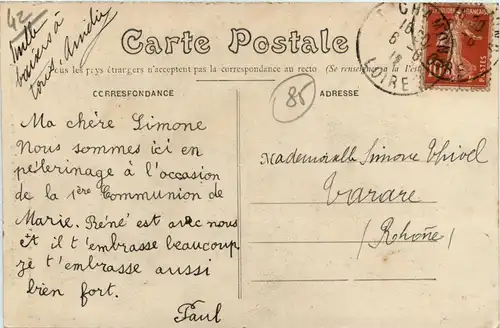 42
Mille
baisers à
tous. Amélie
Carte Postale
Tous les pays étrangers n'acceptent pas la correspondance au recto (Se renseigner à la Poste
CORRESPONDANCE
85
ADRESSE
Ma chère Simone
Nous sommes ici en
pèlerinage à l'occasion
de la 1ère Communion de
Marie. Réné est avec nous
et il t'embrasse beaucoup
je t'embrasse aussi
bien fort.
Paul
Mademoiselle Simone Thivel
Tarare
(Rhône)
LOIRE
POSTES